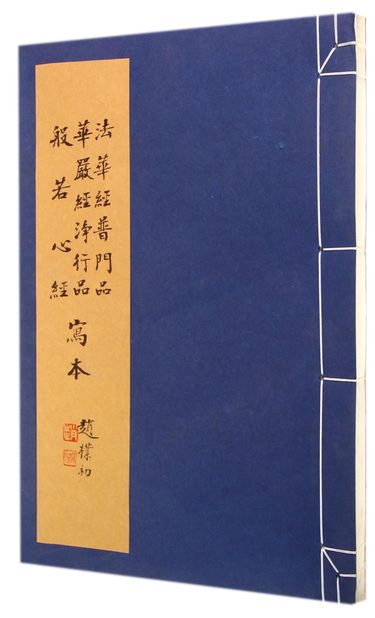 法華經普門品
華嚴經淨行品
般若心經
寫本
趙樸初